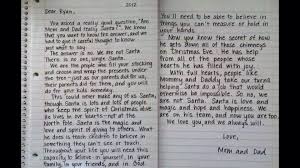 2012
Dear Ryan,
You asked a really good question, "Are
Mom and Dad really Santa?" We know
you've wanted the answer, and we
had to give it careful thought to know
just what to say.
The answer is no. We are not
Santa. There is no one Santa.
We are the people who fill your stocking
and choose and wrap the presents under
the tree - just as our parents did for us,
their parents did for them, and you will
do for your kids someday.
This could never make any of us Santa,
though. Santa is lots and lots of people
who keep the spirit of Christmas alive.
He lives in our hearts - not at the
North Pole. Santa is the magic and
love and spirit of giving to others. What
he does is teach children to believe in
something they can't see or touch.
Throughout your life you will need this
capacity to believe in yourself, in your
family, in your friends, and in God.
You'll need to be able to believe in
things you can't measure or hold in
your hands.
Now you know the secret of how
he gets down all of those chimneys
on Christmas Eve: He has help
from all of the people whose
hearts he has filled with joy.
With full hearts, people like
Mommy and Daddy take our turns
helping Santa to do a job that would
otherwise be impossible. So, no, we
are not Santa. Santa is love and
magic and hope and happiness. We
are on his team, and now you are too.
We love you and we always will.
Love,
Mom and Dad